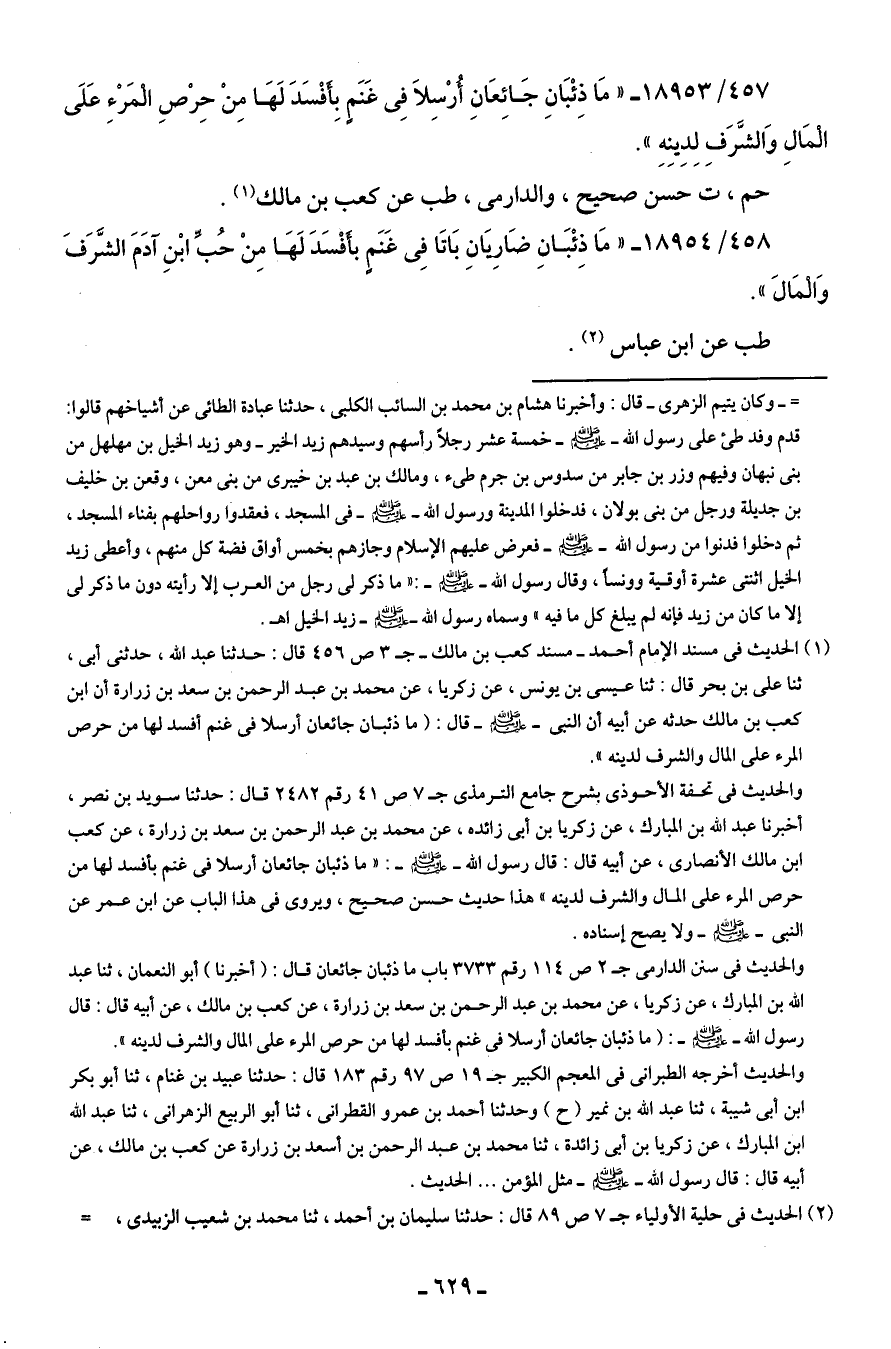 ١٨٩٥٣/٤٥٧ـ « مَا ذِئْبَانِ جَـائِعَانِ أُرْسِلاَ فِى غَنَمٍ بِأَفْسَدَ لَهَـا مِنْ حِرْصِ الْمَرْءِ عَلَى
الْمَالِ وَالشَّرَفِ لِدِينِهِ ».
حم ، ت حسن صحيح ، والدارمى ، طب عن كعب بن مالك(١) .
١٨٩٥٤/٤٥٨ـ « مَا ذِئْبَـانِ ضَارِيَانِ بَاتَا فِى غَنَمٍ بِأَفْسَدَ لَهَـا مِنْ حُبِّ ابْنِ آدَمَ الشَّرَفَ
وَالْمَالَ ».
طب عن ابن عباس (٢) .
= ـ وكان يتيم الزهرى ـ قال : وأخبرنا هشام بن محمد بن السائب الكلبى ، حدثنا عبادة الطائى عن أشياخهم قالوا:
قدم وفد طئ على رسول الله ـ ﷺ ـ خمسة عشر رجلاً رأسهم وسيدهم زيد الخير ـ وهو زيد الخيل بن مهلهل من
بنى نبهان وفيهم وزر بن جابر من سدوس بن جرم طىء ، ومالك بن عبد بن خيبرى من بنى معن ، وقعن بن خليف
بن جديلة ورجل من بنى بولان ، فدخلوا المدينة ورسول الله ـ ﷺ ـ فى المسجد ، فعقدوا رواحلهم بفناء المسجد ،
ثم دخلوا فدنوا من رسول الله ـ ﷺ ـ فعرض عليهم الإسلام وجازهم بخمس أواق فضة كل منهم ، وأعطى زيد
الخيل اثنتى عشرة أوقية وونساً ، وقال رسول الله ـ ﷺ ـ :« ما ذكر لى رجل من العـرب إلا رأيته دون ما ذكر لى
إلا ما كان من زيد فإنه لم يبلغ كل ما فيه » وسماه رسول الله ـ ﷺ ـ زيد الخيل اهـ .
(١) الحديث فى مسند الإمام أحـمد ـ مسند كعب بن مالك ـ جـ ٣ ص ٤٥٦ قال : حـدثنا عبد الله ، حدثنى أبى ،
ثنا على بن بحر قال : ثنا عيـسى بن يونس ، عن زكريا ، عن محمد بن عبـد الرحمن بن سعد بن زرارة أن ابن
كعب بن مالك حدثه عن أبيه أن النبى ـ ﷺ ـ قال : ( ما ذئبـان جائعان أرسلا فى غنم أفسد لها من حرص
المرء على المال والشرف لدينه ».
والحديث فى تحـفة الأحـوذى بشرح جامع التـرمذى جـ ٧ ص ٤١ رقم ٢٤٨٢ قـال : حدثنا سـويد بن نصر ،
أخبرنا عبد الله بن المبارك ، عن زكريا بن أبى زائده ، عن محمد بن عبد الرحمن بن سعد بن زرارة ، عن كعب
ابن مالك الأنصارى ، عن أبيه قال : قال رسول الله ـ ﷺ ـ : « ما ذئبان جائعان أرسلا فى غنم بأفسد لها من
حرص المرء على المـال والشرف لدينه » هذا حديث حـسن صحيح ، ويروى فى هذا الباب عن ابن عـمر عن
النبى ـ ﷺ ـ ولا يصح إسناده .
والحديث فى سنن الدارمى جـ ٢ ص ١١٤ رقم ٣٧٣٣ باب ما ذئبان جائعان قـال : ( أخبرنا ) أبو النعمان ، ثنا عبد
الله بن المبارك ، عن زكريا ، عن محمد بن عبد الرحـمن بن سعد بن زرارة ، عن كعب بن مالك ، عن أبيه قال : قال
رسول الله ـ ﷺ ـ : ( ما ذئبان جائعان أرسلا فى غنم بأفسد لها من حرص المرء على المال والشرف لدينه ».
والحديث أخرجه الطبرانى فى المعجم الكبير جـ ١٩ ص ٩٧ رقم ١٨٣ قال : حدثنا عبيد بن غنام ، ثنا أبو بكر
ابن أبى شيبة ، ثنا عبد الله بن نمير ( ح ) وحدثنا أحمد بن عمرو القطرانى ، ثنا أبو الربيع الزهرانى ، ثنا عبد الله
ابن المبارك ، عن زكريا بن أبى زائدة ، ثنا محمد بن عـبد الرحمن بن أسعد بن زرارة عن كعب بن مالك ، عن
أبيه قال : قال رسول الله ـ ﷺ ـ مثل المؤمن ... الحديث .
(٢) الحديث فى حلية الأولياء جـ ٧ ص ٨٩ قال : حدثنا سليمان بن أحمد ، ثنا محمد بن شعيب الزبيدى ، =
ـ ٦٢٩ ـ